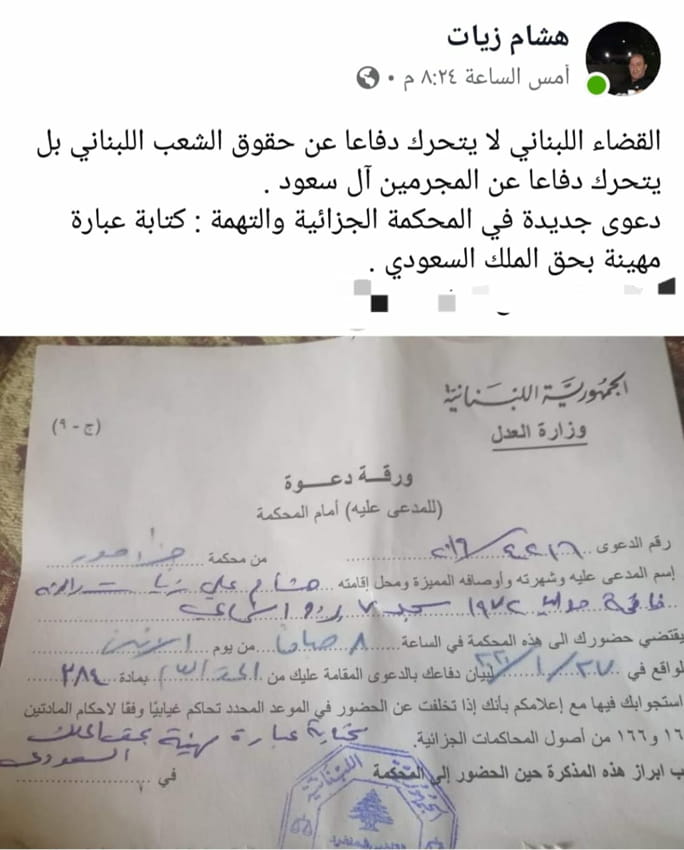 هشام زيات
أمس الساعة ٨:٢٤ م
القضاء اللبناني لا يتحرك دفاعا عن حقوق الشعب اللبناني بل
يتحرك دفاعا عن المجرمين آل سعود .
دعوى جديدة في المحكمة الجزائية والتهمة : كتابة عبارة
مهينة بحق الملك السعودي .
الجمهورية اللبنانية
وزارة العدل
(ج - ٩)
ورقة دعوة
(للمدعى عليه) أمام المحكمة
رقم الدعوى
من محكمة
إسم المدعى عليه وشهرته وأوصافه المميزة ومحل إقامته هشام علي زيات
يقتضي حضورك الى هذه المحكمة في الساعة ٨ صباحا من يوم الاثنين
لواقع في ٢٧/١/ لبيان دفاعك بالدعوى المقامة عليك من الحق العام بمادة ٣٨٤
استجوابك فيها مع إعلامكم بأنك إذا تخلفت عن الحضور في الموعد المحدد تحاكم غيابيا وفقا لاحكام المادتين
١٦٦ من أصول المحاكمات الجزائية. كتابة عبارة مهينة بحق الملك
السعودي
ب ابراز هذه المذكرة حين الحضور إلى المحكمة
في